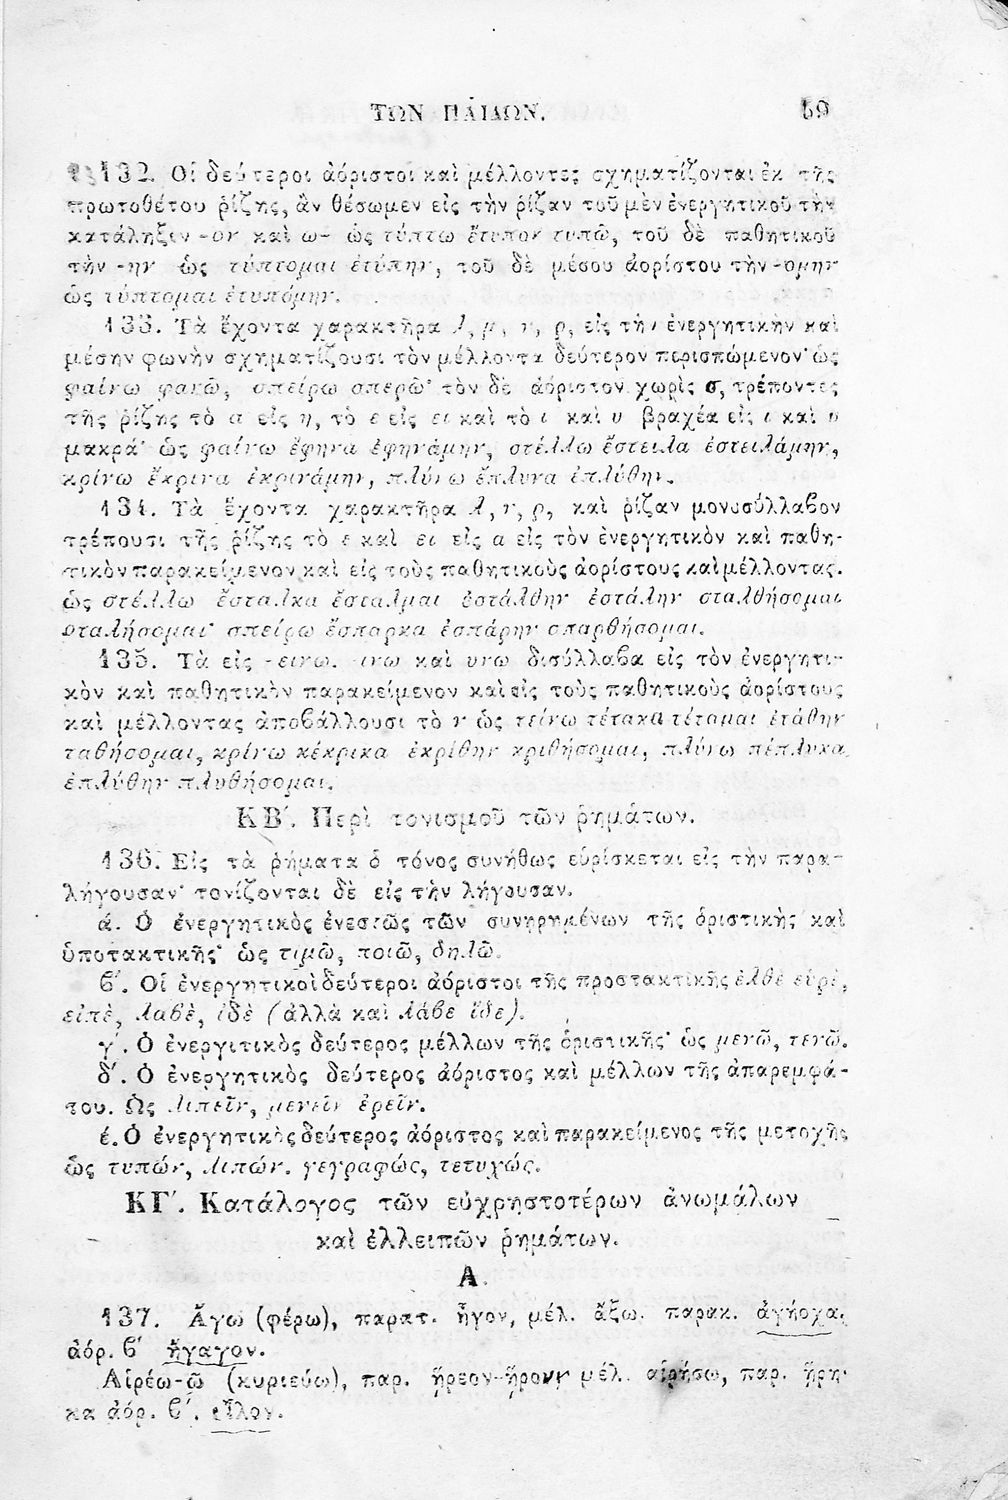 ΤΩΝ ΠΑΙΔΩΝ. 59
132. Οἱ δεύτεροι ἀόριστοι καὶ μέλλοντες σχηματίζονται ἐκ τῆς
πρωτοθέτου ῥίζης, ἂν θέσωμεν εἰς τὴν ῥίζαν τοῦ μὲν ἐνεργητικοῦ τὴν
κατάληξιν -ον καὶ ω- ὡς τύπτω ἔτυπον τυπῶ, τοῦ δὲ παθητικοῦ
τὴν -ην ὡς τύπτομαι ἐτύπην, τοῦ δὲ μέσου ἀορίστου τὴν -ομην
ὡς τύπτομαι ἐτυπόμην.
133. Τὰ ἔχοντα χαρακτῆρα λ, μ, ν, ρ, εἰς τὴν ἐνεργητικὴν καὶ
μέσην φωνὴν σχηματίζουσι τὸν μέλλοντα δεύτερον περισπώμενον· ὡς
φαίνω φανῶ, σπείρω σπερῶ· τὸν δὲ ἀόριστον χωρὶς σ, τρέποντες
τῆς ῥίζης τὸ α εἰς η, τὸ ε εἰς ει καὶ τὸ ι καὶ υ βραχέα εἰς ι καὶ υ
μακρά· ὡς φαίνω ἔφηνα ἐφηνάμην, στέλλω ἔστειλα ἐστειλάμην,
κρίνω ἔκρινα ἐκρινάμην, πλύνω ἔπλυνα ἐπλύθην.
134. Τὰ ἔχοντα χαρακτῆρα λ, ν, ρ, καὶ ῥίζαν μονοσύλλαβον
τρέπουσι τῆς ῥίζης τὸ ε καὶ ει εἰς α εἰς τὸν ἐνεργητικὸν καὶ παθη-
τικὸν παρακείμενον καὶ εἰς τοὺς παθητικοὺς ἀορίστους καὶ μέλλοντας.
ὡς στέλλω ἔσταλκα ἔσταλμαι ἐστάλθην ἐστάλην σταλθήσομαι
σταλήσομαι· σπείρω ἔσπαρκα ἐσπάρην σπαρθήσομαι.
135. Τὰ εἰς -εινω. -ινω καὶ υνω δισύλλαβα εἰς τὸν ἐνεργητι-
κὸν καὶ παθητικὸν παρακείμενον καὶ εἰς τοὺς παθητικοὺς ἀορίστους
καὶ μέλλοντας ἀποβάλλουσι τὸ ν ὡς τείνω τέτακα τέταμαι ἐτάθην
ταθήσομαι, κρίνω κέκρικα ἐκρίθην κριθήσομαι, πλύνω πέπλυκα
ἐπλύθην πλυθήσομαι.
ΚΒ΄. Περὶ τονισμοῦ τῶν ῥημάτων.
136. Εἰς τὰ ῥήματα ὁ τόνος συνήθως εὑρίσκεται εἰς τὴν παρα-
λήγουσαν· τονίζονται δὲ εἰς τὴν λήγουσαν.
ά. Ὁ ἐνεργητικὸς ἐνεστὼς τῶν συνηρημένων τῆς ὁριστικῆς καὶ
ὑποτακτικῆς· ὡς τιμῶ, ποιῶ, δηλῶ.
β΄. Οἱ ἐνεργητικοὶ δεύτεροι ἀόριστοι τῆς προστακτικῆς ἐλθὲ εὑρὲ,
εἰπὲ, λαβὲ, ἰδὲ (ἀλλὰ καὶ λάβε ἴδε).
γ΄. Ὁ ἐνεργιτικὸς δεύτερος μέλλων τῆς ὁριστικῆς· ὡς μενῶ, τενῶ.
δ΄. Ὁ ἐνεργητικὸς δεύτερος ἀόριστος καὶ μέλλων τῆς ἀπαρεμφά-
του. Ὡς λιπεῖν, μενεῖν ἐρεῖν.
έ. Ὁ ἐνεργητικὸς δεύτερος ἀόριστος καὶ παρακείμενος τῆς μετοχῆς
ὡς τυπών, λιπών. γεγραφώς, τετυχώς.
ΚΓ΄. Κατάλογος τῶν εὐχρηστοτέρων ἀνωμάλων
καὶ ἐλλειπῶν ῥημάτων.
Α.
137. Ἄγω (φέρω), παρατ. ἦγον, μέλ. ἄξω. παρακ. ἀγήοχα,
ἀόρ. β΄ ἤγαγον.
Αἱρέω-ῶ (κυριεύω), παρ. ᾕρεον-ᾕρουν μέλ. αἱρήσω, παρ. ᾕρη-
κα ἀόρ. β΄. εἷλον.